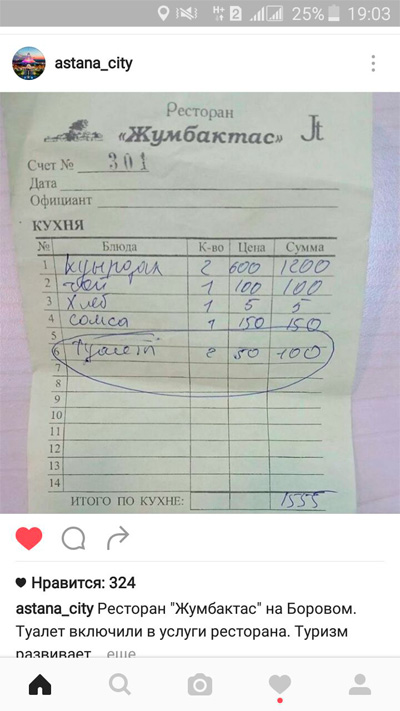 H+ 2 25% 19:03
astana_city
Ресторан
«Жумбактас» Jt
Счет № 301
Дата
Официант
КУХНЯ
№ Блюда К-во Цена Сумма
1 куырдак 2 600 1200
2 чай 1 100 100
3 Хлеб 1 5 5
4 самса 1 150 150
5
6 Туалет 2 50 100
7
8
9
10
11
12
13
14
ИТОГО ПО КУХНЕ: 1555
Нравится: 324
astana_city Ресторан "Жумбактас" на Боровом.
Туалет включили в услуги ресторана. Туризм
развивает... еще